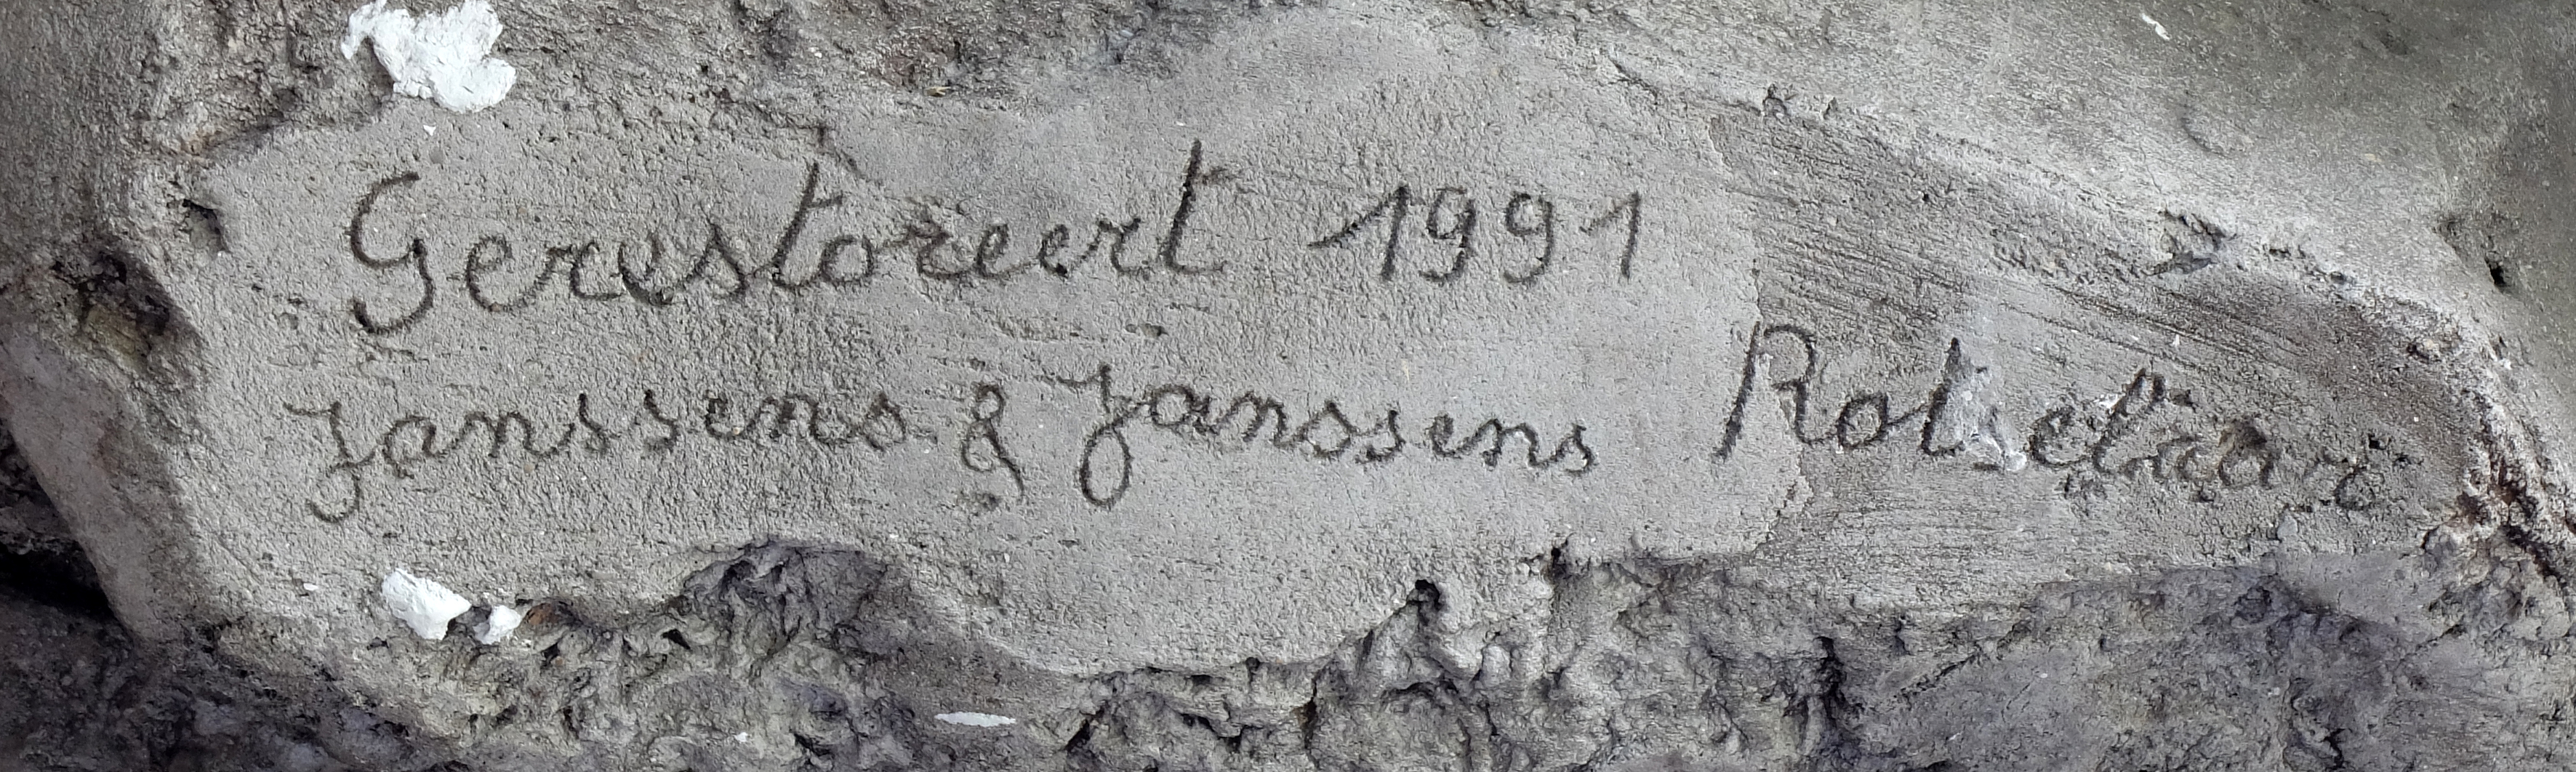 Gerestoreert 1991
Janssens & Janssens Rotselaar